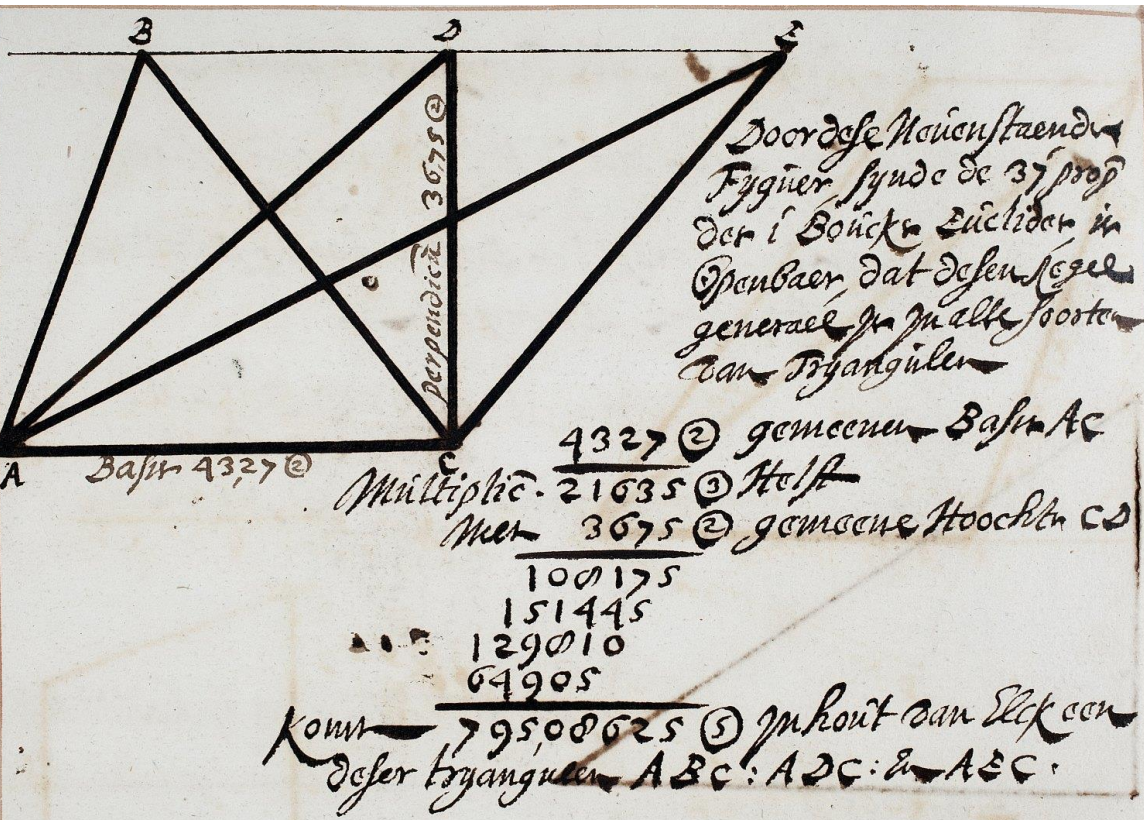 B D E
perpendicu 3675 ②
Doordese Neuenstaende
Fyguer, synde de 37 prop
der i Boucks Euclides is
Openbaer, dat desen Regel
generael is in alle soorten
van Tryangulen
A Basis 4327 ② C
4327 ② gemeenen Basis AC
Multiplic. 21635 ③ Helft
Met 3675 ② gemeene Hoochte CD
108175
151445
129810
64905
Komt 79508625 ⑤ Inhout van Elck een
deser tryangulen ABC : ADC : & AEC.